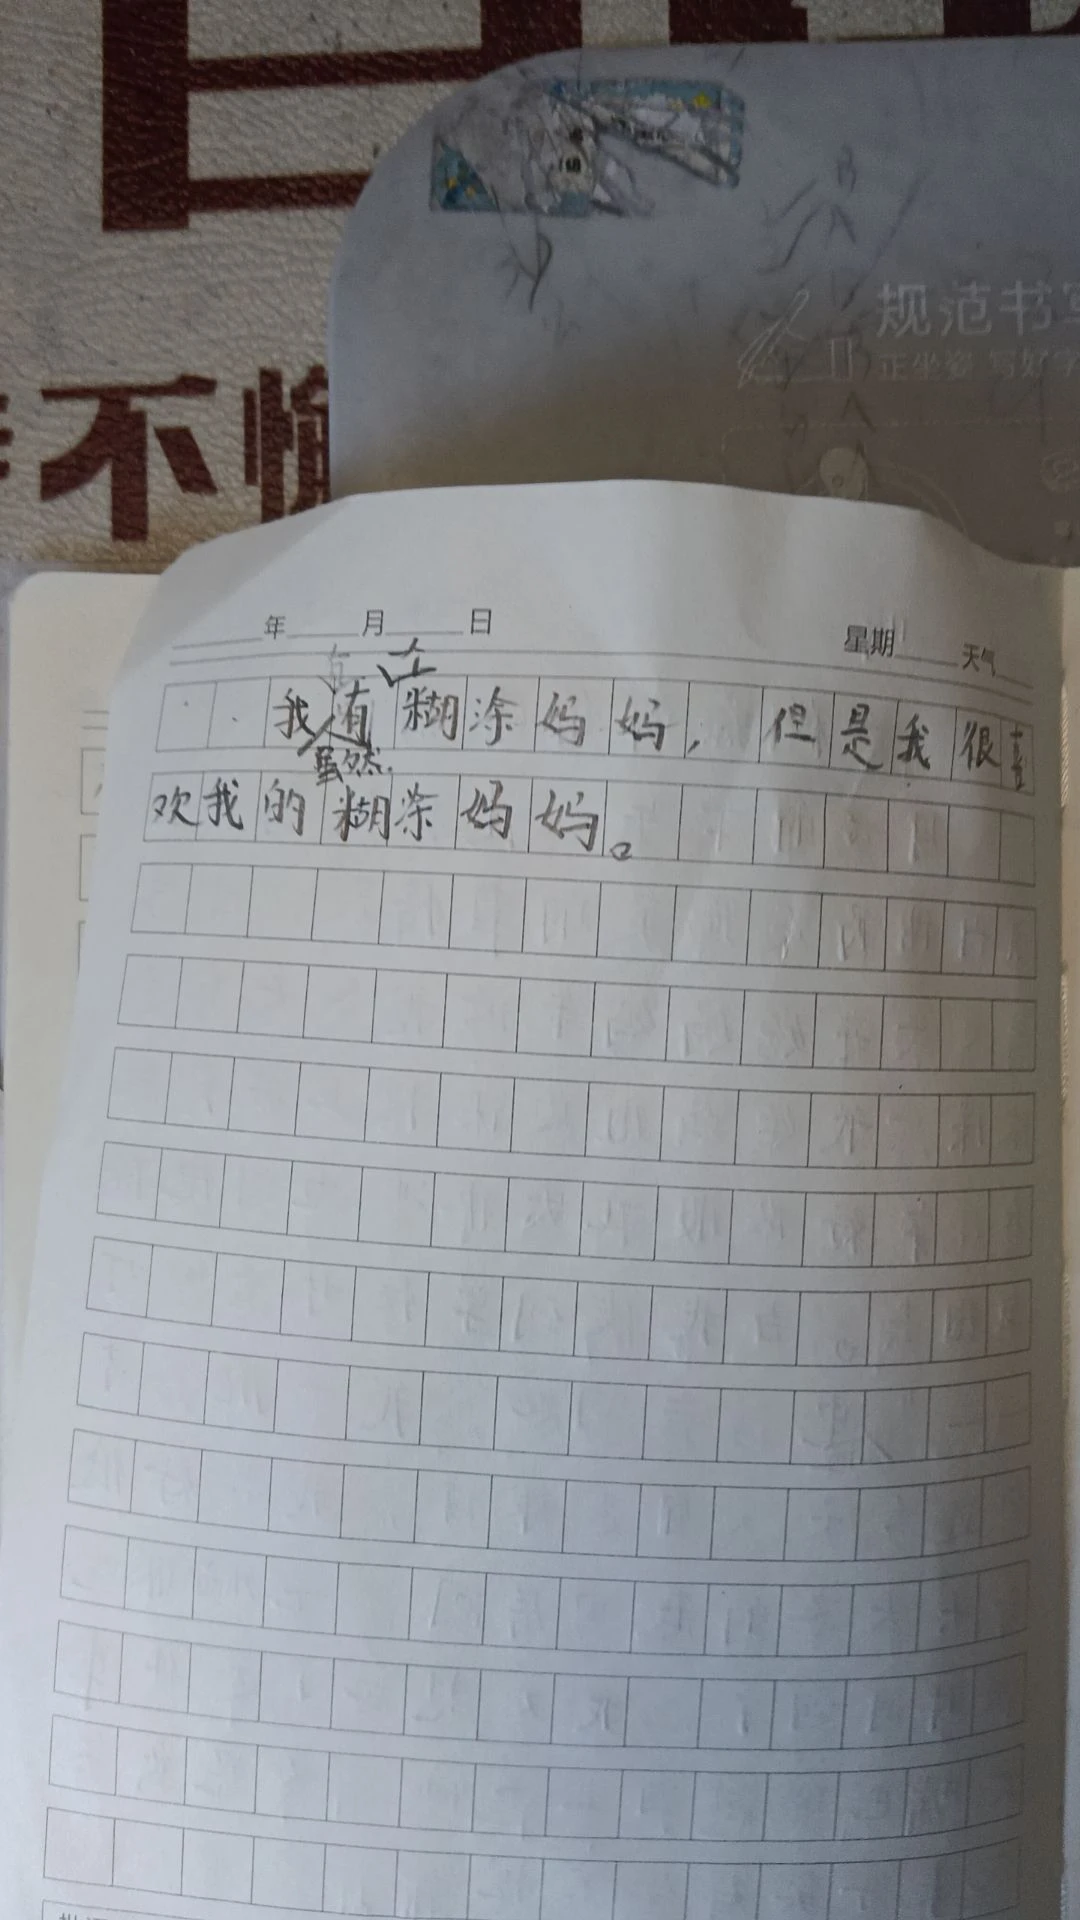 不愉
规范书写
正坐姿 写好字
年 月 日 星期 天气
我虽然有个糊涂妈妈，但是我很喜
欢我的糊涂妈妈。